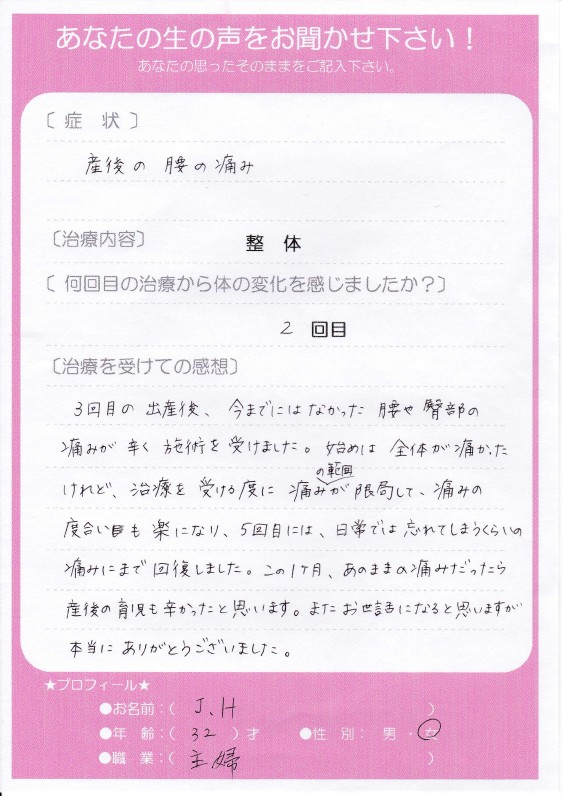 あなたの生の声をお聞かせ下さい！
あなたの思ったそのままをご記入下さい。
〔 症 状 〕
産後の 腰の痛み
〔治療内容〕 整 体
〔 何回目の治療から体の変化を感じましたか？〕
2 回目
〔治療を受けての感想〕
3回目の 出産後、今までにはなかった 腰や 臀部の
痛みが 辛く 施術を 受けました。始めは 全体が痛かった
けれど、治療を 受ける度に 痛みの範囲が 限局して、痛みの
度合いも 楽になり、5回目には、日常では 忘れてしまうくらいの
痛みにまで 回復しました。この1ヶ月、あのままの痛みだったら
産後の育児も辛かったと思います。またお世話になると思いますが
本当に ありがとうございました。
★プロフィール★
●お名前：（ J.H ）
●年 齢：（ 32 ）才 ●性 別： 男 ・ 女
●職 業：（ 主婦 ）